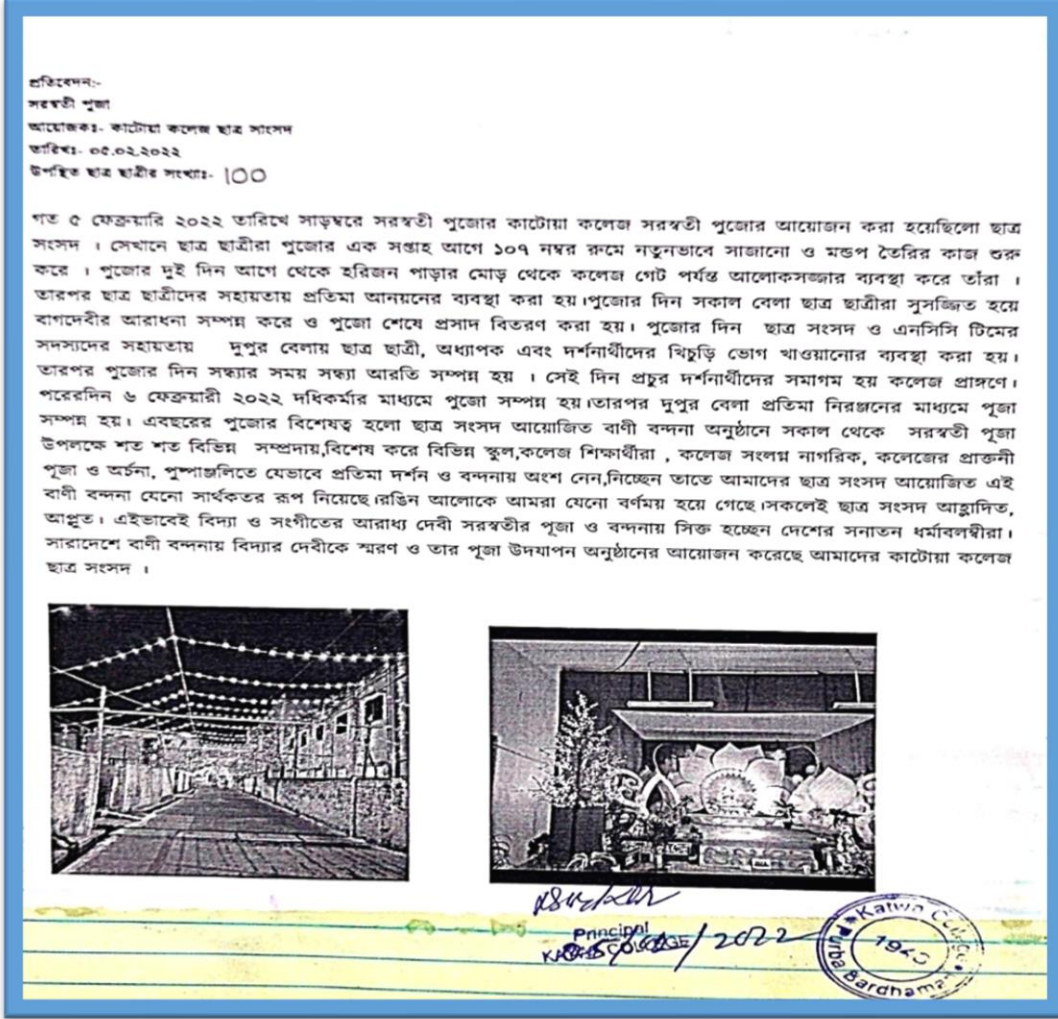 প্রতিবেদন:-
সরস্বতী পূজা
আয়োজকঃ- কাটোয়া কলেজ ছাত্র সাংসদ
তারিখঃ- ০৫.০২.২০২২
উপস্থিত ছাত্র ছাত্রীর সংখ্যাঃ- 100
গত ৫ ফেব্রুয়ারি ২০২২ তারিখে সাড়ম্বরে সরস্বতী পুজোর কাটোয়া কলেজ সরস্বতী পুজোর আয়োজন করা হয়েছিলো ছাত্র
সংসদ । সেখানে ছাত্র ছাত্রীরা পুজোর এক সপ্তাহ আগে ১০৭ নম্বর রুমে নতুনভাবে সাজানো ও মন্ডপ তৈরির কাজ শুরু
করে । পুজোর দুই দিন আগে থেকে হরিজন পাড়ার মোড় থেকে কলেজ গেট পর্যন্ত আলোকসজ্জার ব্যবস্থা করে তাঁরা ।
তারপর ছাত্র ছাত্রীদের সহায়তায় প্রতিমা আনয়নের ব্যবস্থা করা হয়।পুজোর দিন সকাল বেলা ছাত্র ছাত্রীরা সুসজ্জিত হয়ে
বাগদেবীর আরাধনা সম্পন্ন করে ও পুজো শেষে প্রসাদ বিতরণ করা হয়। পুজোর দিন ছাত্র সংসদ ও এনসিসি টিমের
সদস্যদের সহায়তায় দুপুর বেলায় ছাত্র ছাত্রী, অধ্যাপক এবং দর্শনার্থীদের খিচুড়ি ভোগ খাওয়ানোর ব্যবস্থা করা হয়।
তারপর পুজোর দিন সন্ধ্যার সময় সন্ধ্যা আরতি সম্পন্ন হয় । সেই দিন প্রচুর দর্শনার্থীদের সমাগম হয় কলেজ প্রাঙ্গণে।
পরেরদিন ৬ ফেব্রুয়ারী ২০২২ দধিকর্মার মাধ্যমে পুজো সম্পন্ন হয়।তারপর দুপুর বেলা প্রতিমা নিরঞ্জনের মাধ্যমে পূজা
সম্পন্ন হয়। এবছরের পুজোর বিশেষত্ব হলো ছাত্র সংসদ আয়োজিত বাণী বন্দনা অনুষ্ঠানে সকাল থেকে সরস্বতী পূজা
উপলক্ষে শত শত বিভিন্ন সম্প্রদায়,বিশেষ করে বিভিন্ন স্কুল,কলেজ শিক্ষার্থীরা , কলেজ সংলগ্ন নাগরিক, কলেজের প্রাক্তনী
পূজা ও অর্চনা, পুষ্পাঞ্জলিতে যেভাবে প্রতিমা দর্শন ও বন্দনায় অংশ নেন,নিচ্ছেন তাতে আমাদের ছাত্র সংসদ আয়োজিত এই
বাণী বন্দনা যেনো সার্থকতর রূপ নিয়েছে।রঙিন আলোকে আমরা যেনো বর্ণময় হয়ে গেছে।সকলেই ছাত্র সংসদ আহ্লাদিত,
আপ্লুত। এইভাবেই বিদ্যা ও সংগীতের আরাধ্য দেবী সরস্বতীর পূজা ও বন্দনায় সিক্ত হচ্ছেন দেশের সনাতন ধর্মাবলম্বীরা।
সারাদেশে বাণী বন্দনায় বিদ্যার দেবীকে স্মরণ ও তার পূজা উদযাপন অনুষ্ঠানের আয়োজন করেছে আমাদের কাটোয়া কলেজ
ছাত্র সংসদ ।
Principal
COLLEGE /2022
Katwa College
Purba Bardhaman